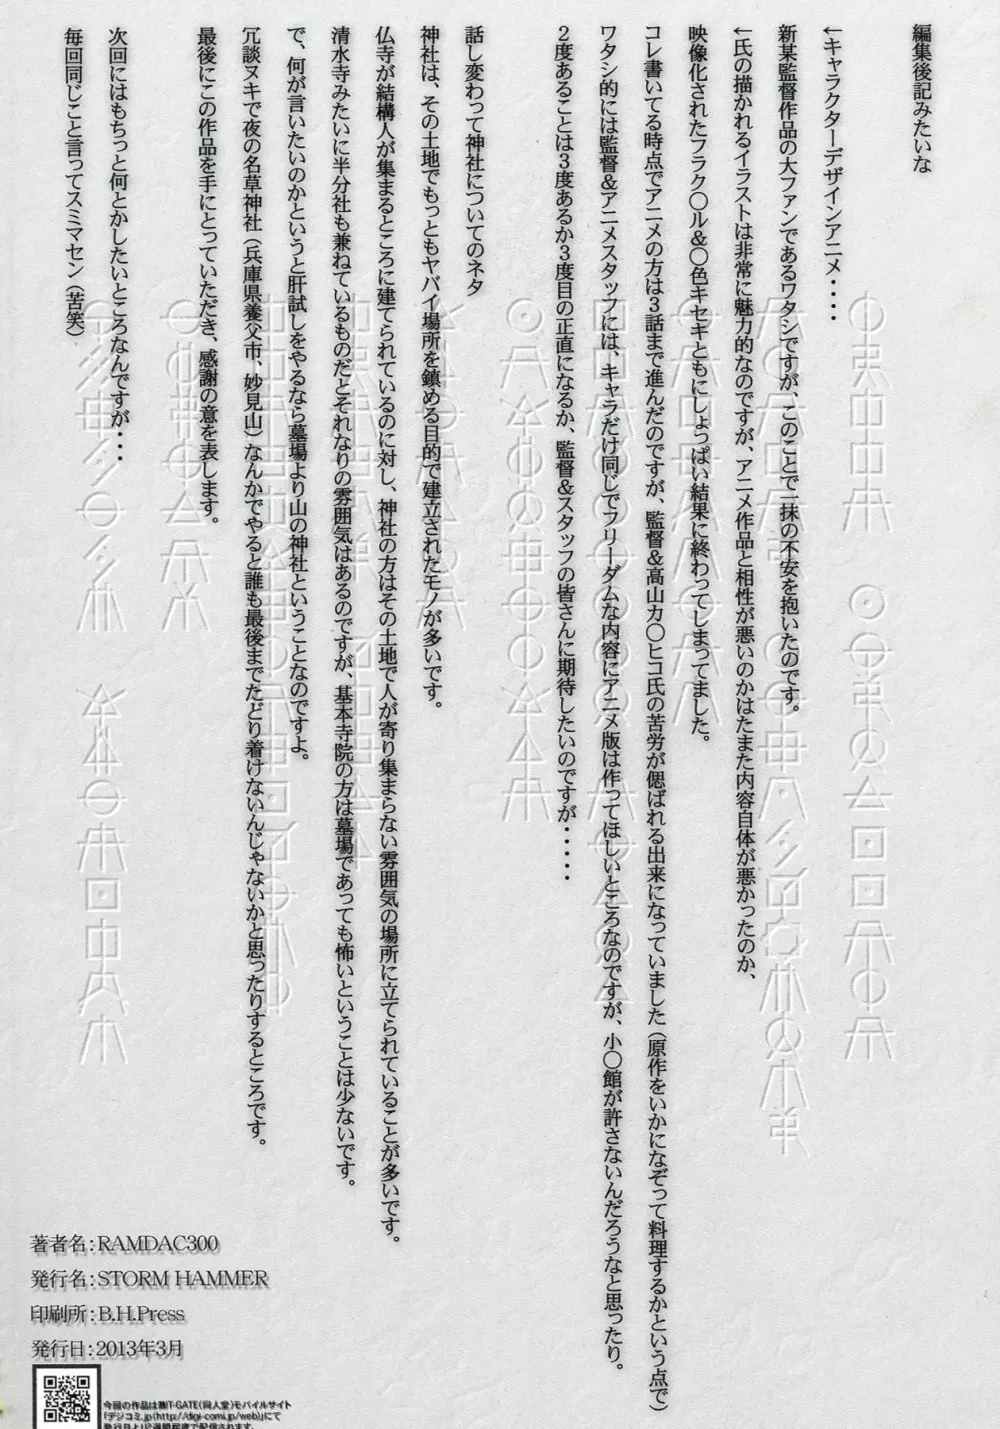 編集後記みたいな
←キャラクターデザインアニメ・・・・
新某監督作品の大ファンであるワタシですが、このことで一抹の不安を抱いたのです。
←氏の描かれるイラストは非常に魅力的なのですが、アニメ作品と相性が悪いのかはたまた内容自体が悪かったのか、
映像化されたフラク〇ル&〇色キセキともにしょっぱい結果に終わってしまってました。
コレ書いてる時点でアニメの方は3話まで進んだのですが、監督&高山カ〇ヒコ氏の苦労が偲ばれる出来になっていました(原作をいかになぞって料理するかという点で)
ワタシ的には監督&アニメスタッフには、キャラだけ同じでフリーダムな内容にアニメ版は作ってほしいところなのですが、小〇館が許さないんだろうなと思ったり。
2度あることは3度あるか3度目の正直になるか、監督&スタッフの皆さんに期待したいのですが・・・・・
話し変わって神社についてのネタ
神社は、その土地でもっともヤバイ場所を鎮める目的で建立されたモノが多いです。
仏寺が結構人が集まるところに建てられているのに対し、神社の方はその土地で人が寄り集まらない雰囲気の場所に立てられていることが多いです。
清水寺みたいに半分社も兼ねているものだとそれなりの雰囲気はあるのですが、基本寺院の方は墓場であっても怖いということは少ないです。
で、何が言いたいのかというと肝試しをやるなら墓場より山の神社ということなのですよ、
冗談ヌキで夜の名草神社(兵庫県養父市、妙見山)なんかでやると誰も最後までたどり着けないんじゃないかと思ったりするところです。
最後にこの作品を手にとっていただき、感謝の意を表します。
次回にはもちっと何とかしたいところなんですが・・・
毎回同じこと言ってスミマセン(苦笑)
著者名:RAMDAC300
発行名:STORM HAMMER
印刷所:B.H.Press
発行日:2013年3月
今回の作品は㈱IT-GATE(同人堂)モバイルサイト
「デジコミ.jp(http://digi-comi.jp/web)」にて
発行日より2週間程度で配信されます。